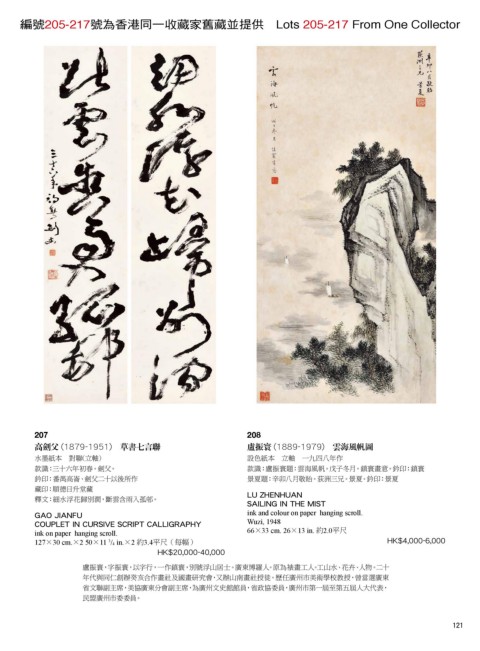 編號205-217號為香港同一收藏家舊藏並提供 Lots 205-217 From One Collector
細水浮花歸別澗
斷雲含雨入孤邨
三十六年初春 劍父
雲海風帆
戊子冬月
辛卯八月敬貽
荻洲三兄 景夏
207
高劍父(1879-1951) 草書七言聯
水墨紙本 對聯(立軸)
款識:三十六年初春,劍父。
鈐印:番禺高崙、劍父二十以後所作
藏印:順德日升堂藏
釋文:細水浮花歸別澗,斷雲含雨入孤邨。
GAO JIANFU
COUPLET IN CURSIVE SCRIPT CALLIGRAPHY
ink on paper hanging scroll.
127×30 cm.×2 50×11 ¾ in.×2 約3.4平尺(每幅)
HK$20,000-40,000
208
盧振寰(1889-1979) 雲海風帆圖
設色紙本 立軸 一九四八年作
款識:盧振寰題:雲海風帆。戊子冬月,鎮寰畫意。鈐印:鎮寰
景夏題:辛卯八月敬貽,荻洲三兄,景夏。鈐印:景夏
LU ZHENHUAN
SAILING IN THE MIST
ink and colour on paper hanging scroll.
Wuzi, 1948
66×33 cm. 26×13 in. 約2.0平尺
HK$4,000-6,000
盧振寰,字振寰,以字行,一作鎮寰,別號浮山居士。廣東博羅人。原為裱畫工人。工山水、花卉、人物。二十
年代與同仁創辦癸亥合作畫社及國畫研究會,又辦山南畫社授徒。歷任廣州市美術學校教授。曾當選廣東
省文聯副主席,美協廣東分會副主席,為廣州文史館館員,省政協委員,廣州市第一屆至第五屆人大代表,
民盟廣州市委委員。
121